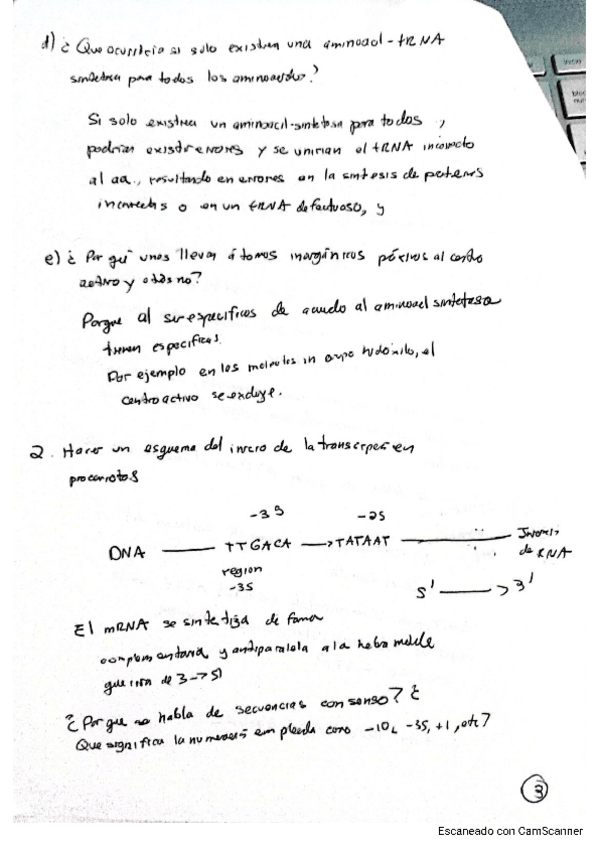 d) ¿Que ocurriria si solo existiera una aminoacil-tRNA
sintetasa para todos los aminoacidos?
Si solo existiera un aminoacil-sintetasa para todos,
podrian existir errores y se unirian el tRNA incorrecto
al aa., resultando en errores en la sintesis de
incorrectas o en un tRNA defectuoso, y
e) ¿Por qué unos llevan átomos inorgánicos próximos al centro
activo y otros no?
Porque al ser especificos de acuerdo al aminoacil sintetasa
tienen especificas.
Por ejemplo en las moleculas sin grupo hidroxilo, el
centro activo se excluye.
2. Hacer un esquema del inicio de la transcripcion en
procariotas
-35
-25
DNA TTGACA TATAAT Inicio
de RNA
region
-35
5' 3'
El mRNA se sintetiza de forma
complementaria y antiparalela a la hebra molde
que corre de 3->5'
¿Por que se habla de secuencias consenso? ¿
Que significa la numeración empleada como -10, -35, +1, etc?
3
Escaneado con CamScanner